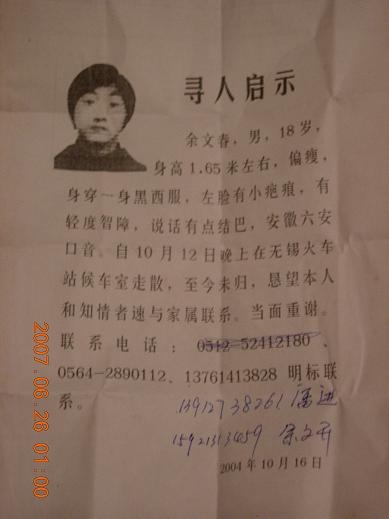 寻人启示
余文春，男，18岁，
身高1.65米左右，偏瘦，
身穿一身黑西服，左脸有小疤痕，有
轻度智障，说话有点结巴，安徽六安
口音。自10月12日晚上在无锡火车
站候车室走散，至今未归，恳望本人
和知情者速与家属联系。当面重谢。
联系电话：0512-52412180、
0564-2890112、13761413828 明标联
系。
13912738261
2004年10月16日
2007.06.28 01:00